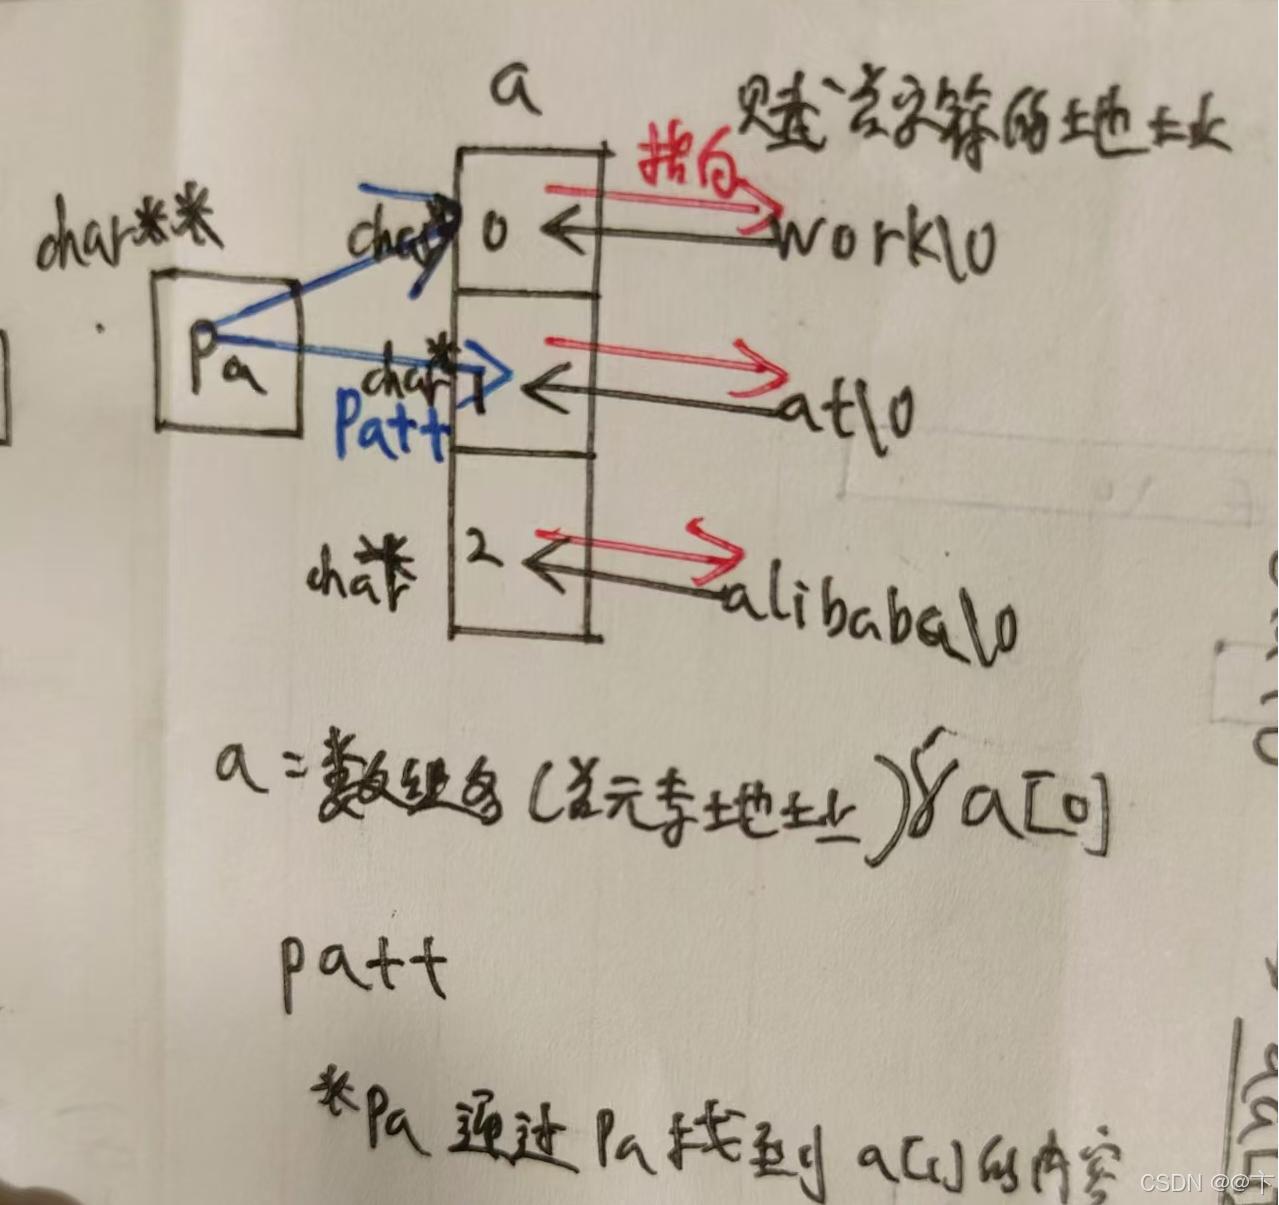 a
赋首字符的地址
指向
char**
char*
0
work\0
Pa
char*
1
Pa++
at\0
char*
2
alibaba\0
a=数组名(首元素地址)&a[0]
pa++
*Pa 通过Pa找到a[1]的内容
CSDN @@卞